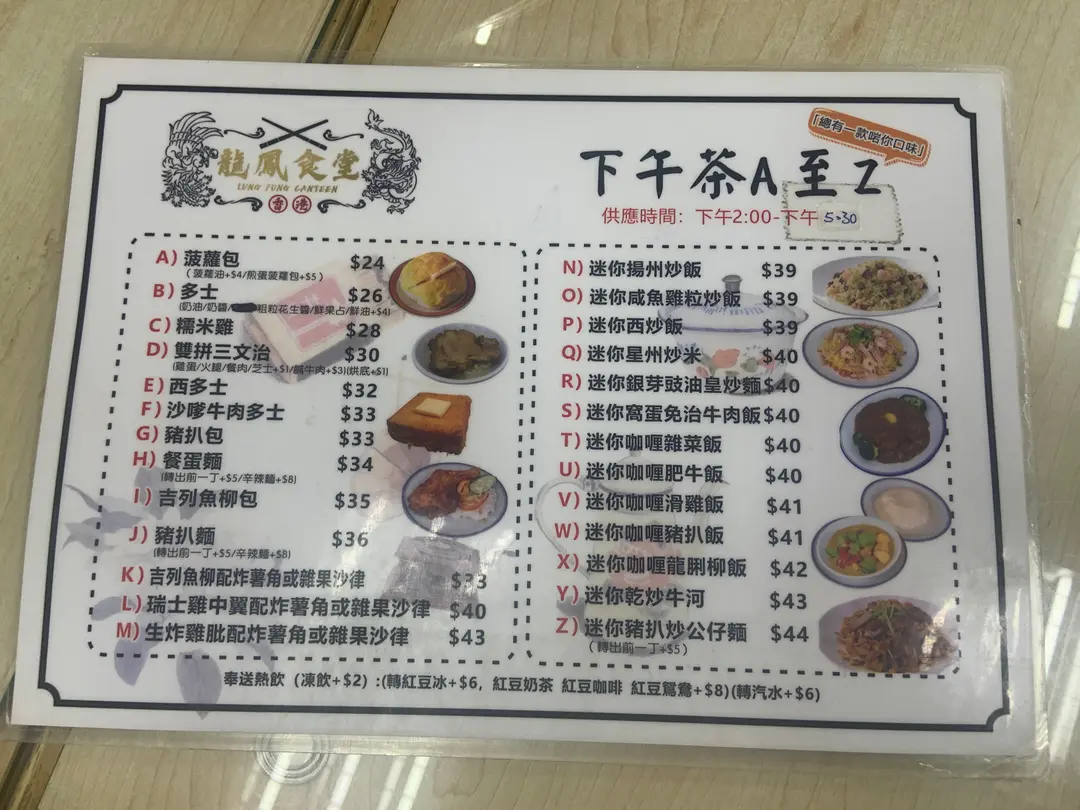 龍鳳食堂
LUNG FUNG CANTEEN
香港
「總有一款啱你口味」
下午茶A至Z
供應時間：下午2:00-下午5:30
A) 菠蘿包 $24
(菠蘿油+$4/煎蛋菠蘿包+$5)
B) 多士 $26
(奶油/奶醬/粗粒花生醬/鮮果占/鮮油+$4)
C) 糯米雞 $28
D) 雙拼三文治 $30
(雞蛋/火腿/餐肉/芝士+$1/鹹牛肉+$3)(烘底+$1)
E) 西多士 $32
F) 沙嗲牛肉多士 $33
G) 豬扒包 $33
H) 餐蛋麵 $34
(轉出前一丁+$5/辛辣麵+$8)
I) 吉列魚柳包 $35
J) 豬扒麵 $36
(轉出前一丁+$5/辛辣麵+$8)
K) 吉列魚柳配炸薯角或雜果沙律 $33
L) 瑞士雞中翼配炸薯角或雜果沙律 $40
M) 生炸雞肶配炸薯角或雜果沙律 $43
N) 迷你揚州炒飯 $39
O) 迷你咸魚雞粒炒飯 $39
P) 迷你西炒飯 $39
Q) 迷你星州炒米 $40
R) 迷你銀芽豉油皇炒麵 $40
S) 迷你窩蛋免治牛肉飯 $40
T) 迷你咖喱雜菜飯 $40
U) 迷你咖喱肥牛飯 $40
V) 迷你咖喱滑雞飯 $41
W) 迷你咖喱豬扒飯 $41
X) 迷你咖喱龍脷柳飯 $42
Y) 迷你乾炒牛河 $43
Z) 迷你豬扒炒公仔麵 $44
(轉出前一丁+$5)
奉送熱飲 (凍飲+$2) :(轉紅豆冰+$6, 紅豆奶茶 紅豆咖啡 紅豆鴛鴦+$8)(轉汽水+$6)